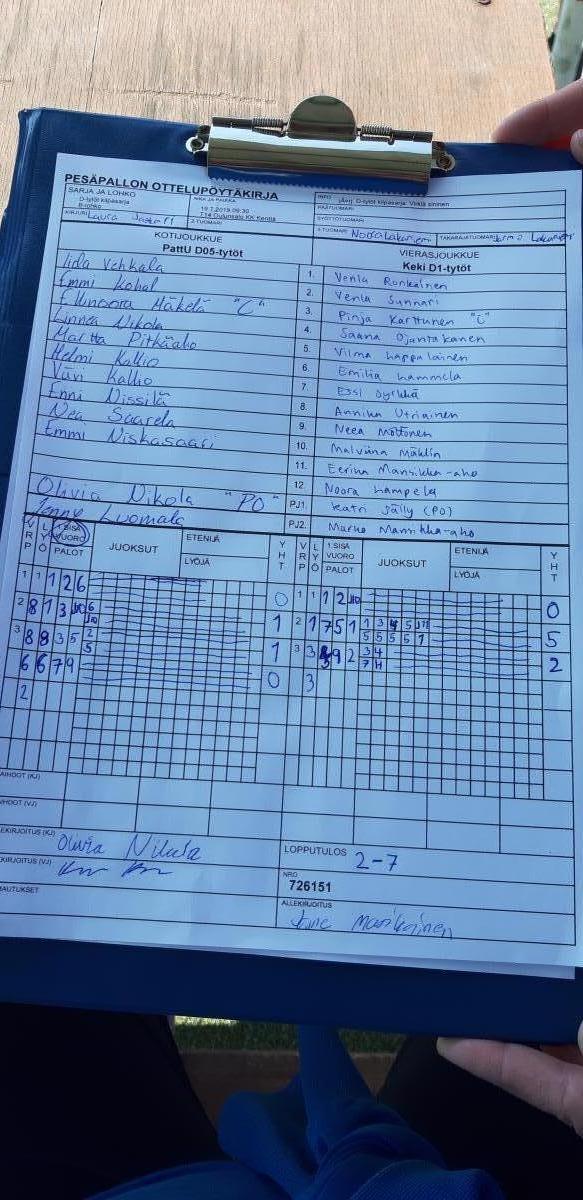 PESÄPALLON OTTELUPÖYTÄKIRJA
SARJA JA LOHKO
D-tytöt kilpasarja
B-lohko
AIKA JA PAIKKA
19.7.2019 09:30
T14 Oulunsalo KK Kenttä
INFO
D-tytöt kilpasarja: Virkiä sininen
PÄÄTUOMARI
SYÖTTÖTUOMARI
KIRJURI Laura
2-TUOMARI
3-TUOMARI Noora Lakanen
TAKARAJATUOMARI Jarmo Lakanen
KOTIJOUKKUE
PattU D05-tytöt
VIERASJOUKKUE
Keki D1-tytöt
Iida Vehkala 1. Venla Ronkainen
Emmi Kohal 2. Venla Sunnari
Ellinoora Mäkelä "C" 3. Pinja Karttunen "C"
Linnea Nikola 4. Saana Ojantakanen
Martta Pitkäaho 5. Vilma Lappalainen
Helmi Kallio 6. Emilia Lammela
Vävi Kallio 7. Essi
Enni Nissilä 8. Annika Utriainen
Nea Saarela 9. Neea Möttönen
Emmi Niskasaari 10. Malviina Mählin
11. Eerina Mansikka-aho
12. Noora Lampela
Olivia Nikola "PO" PJ1. Katri Jälly (PO)
Jenny Luomala PJ2. Marko Mansikka-aho
VRP LYÖ 1.SISÄ VUORO PALOT JUOKSUT ETENIJÄ LYÖJÄ YHT VRP LYÖ 1.SISÄ VUORO PALOT JUOKSUT ETENIJÄ LYÖJÄ YHT
1 1 1 2 6 0 1 1 1 2 10 0
2 8 1 3 10 6 1 2 1 7 5 1 1 3 4 5 11 5
10 5 5 5 5 1
3 8 8 3 5 2 1 3 3 9 2 3 4 2
5 7 4
6 6 7 9 0 3
2
VAIHDOT (KJ)
VAIHDOT (VJ)
ALLEKIRJOITUS (KJ) Olivia Nikola
LOPPUTULOS 2-7
ALLEKIRJOITUS (VJ)
NRO
726151
ALLEKIRJOITUS